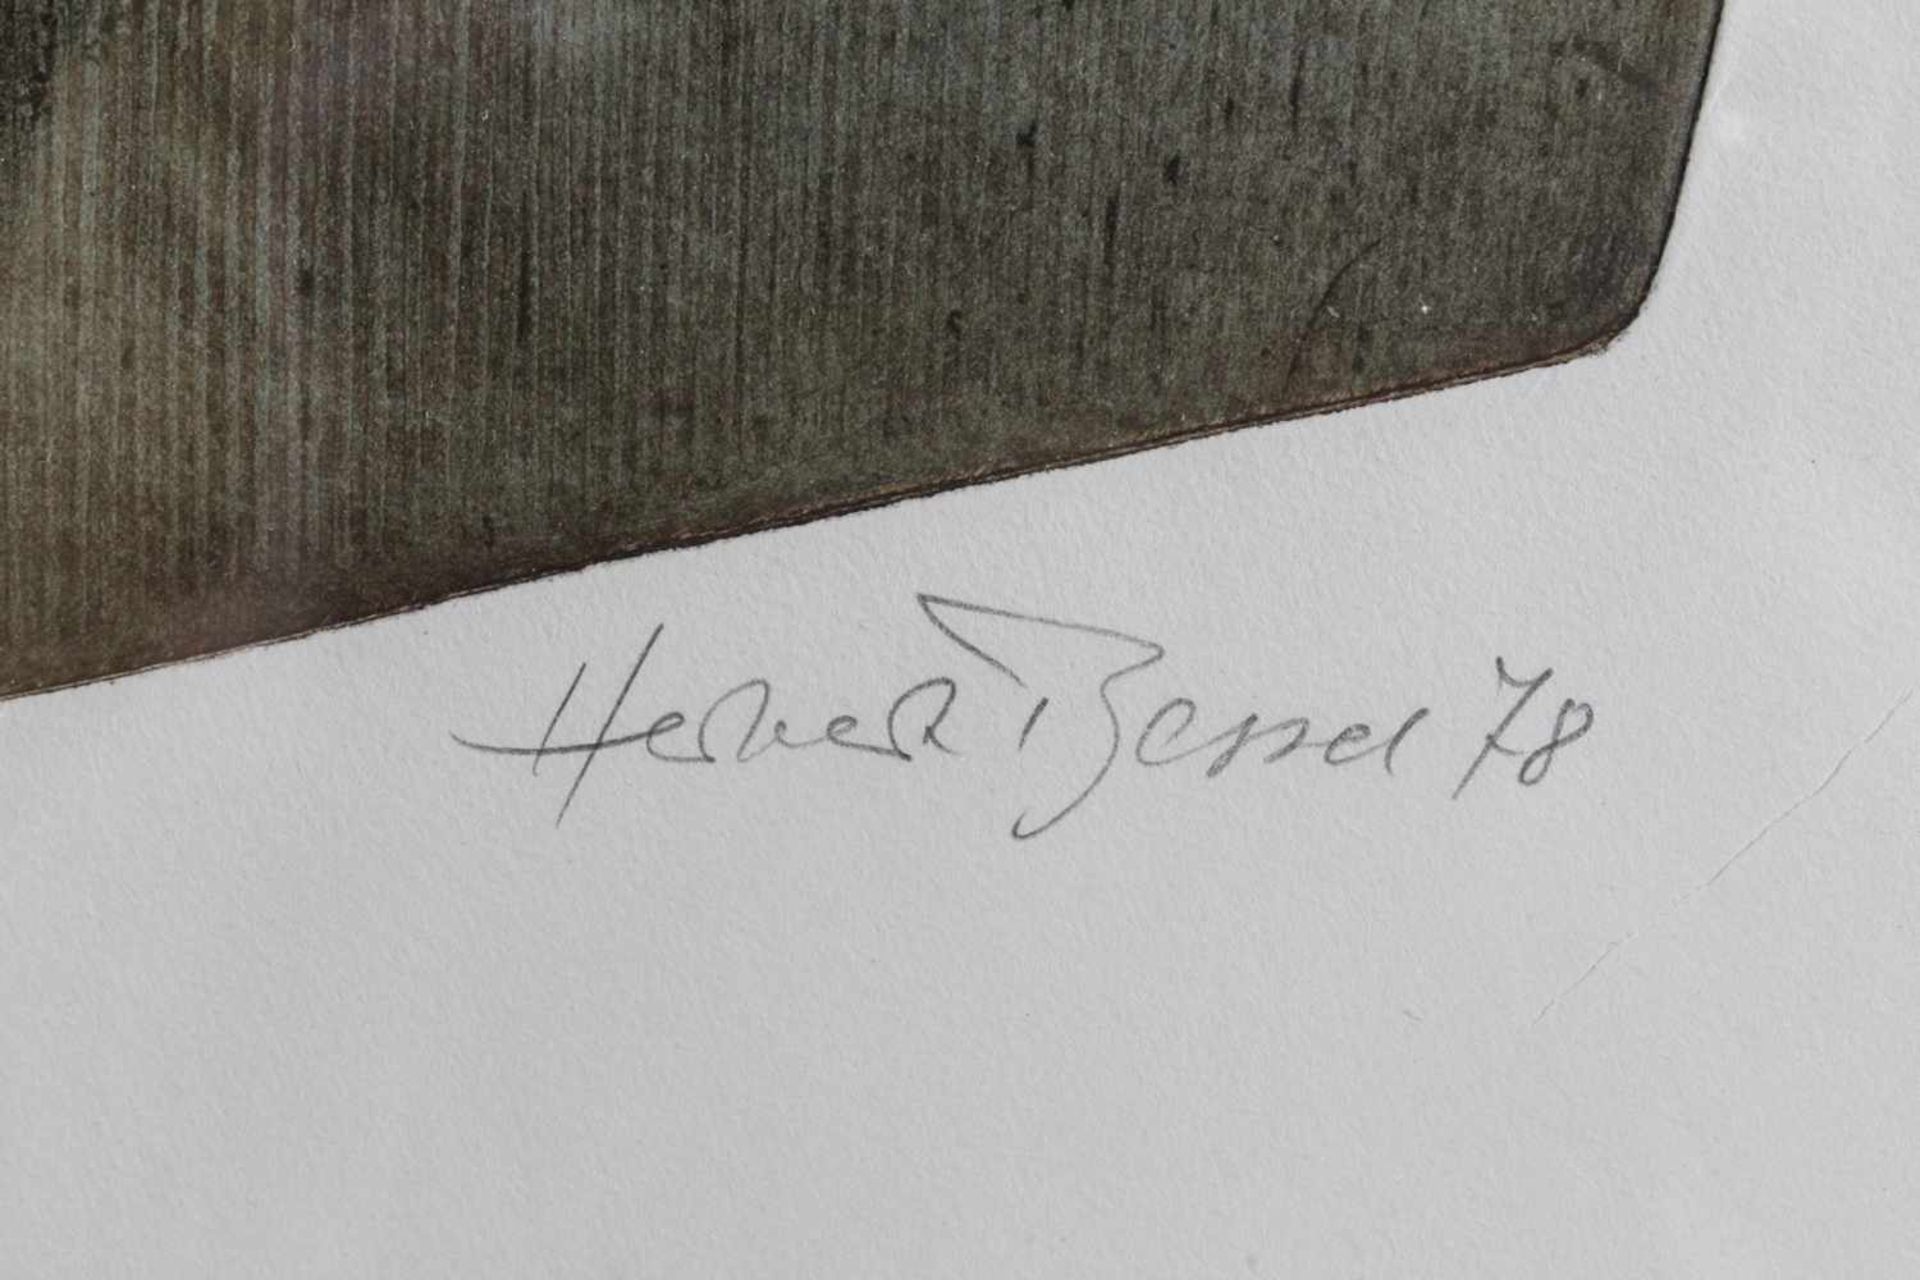 Herbert Bessel 78